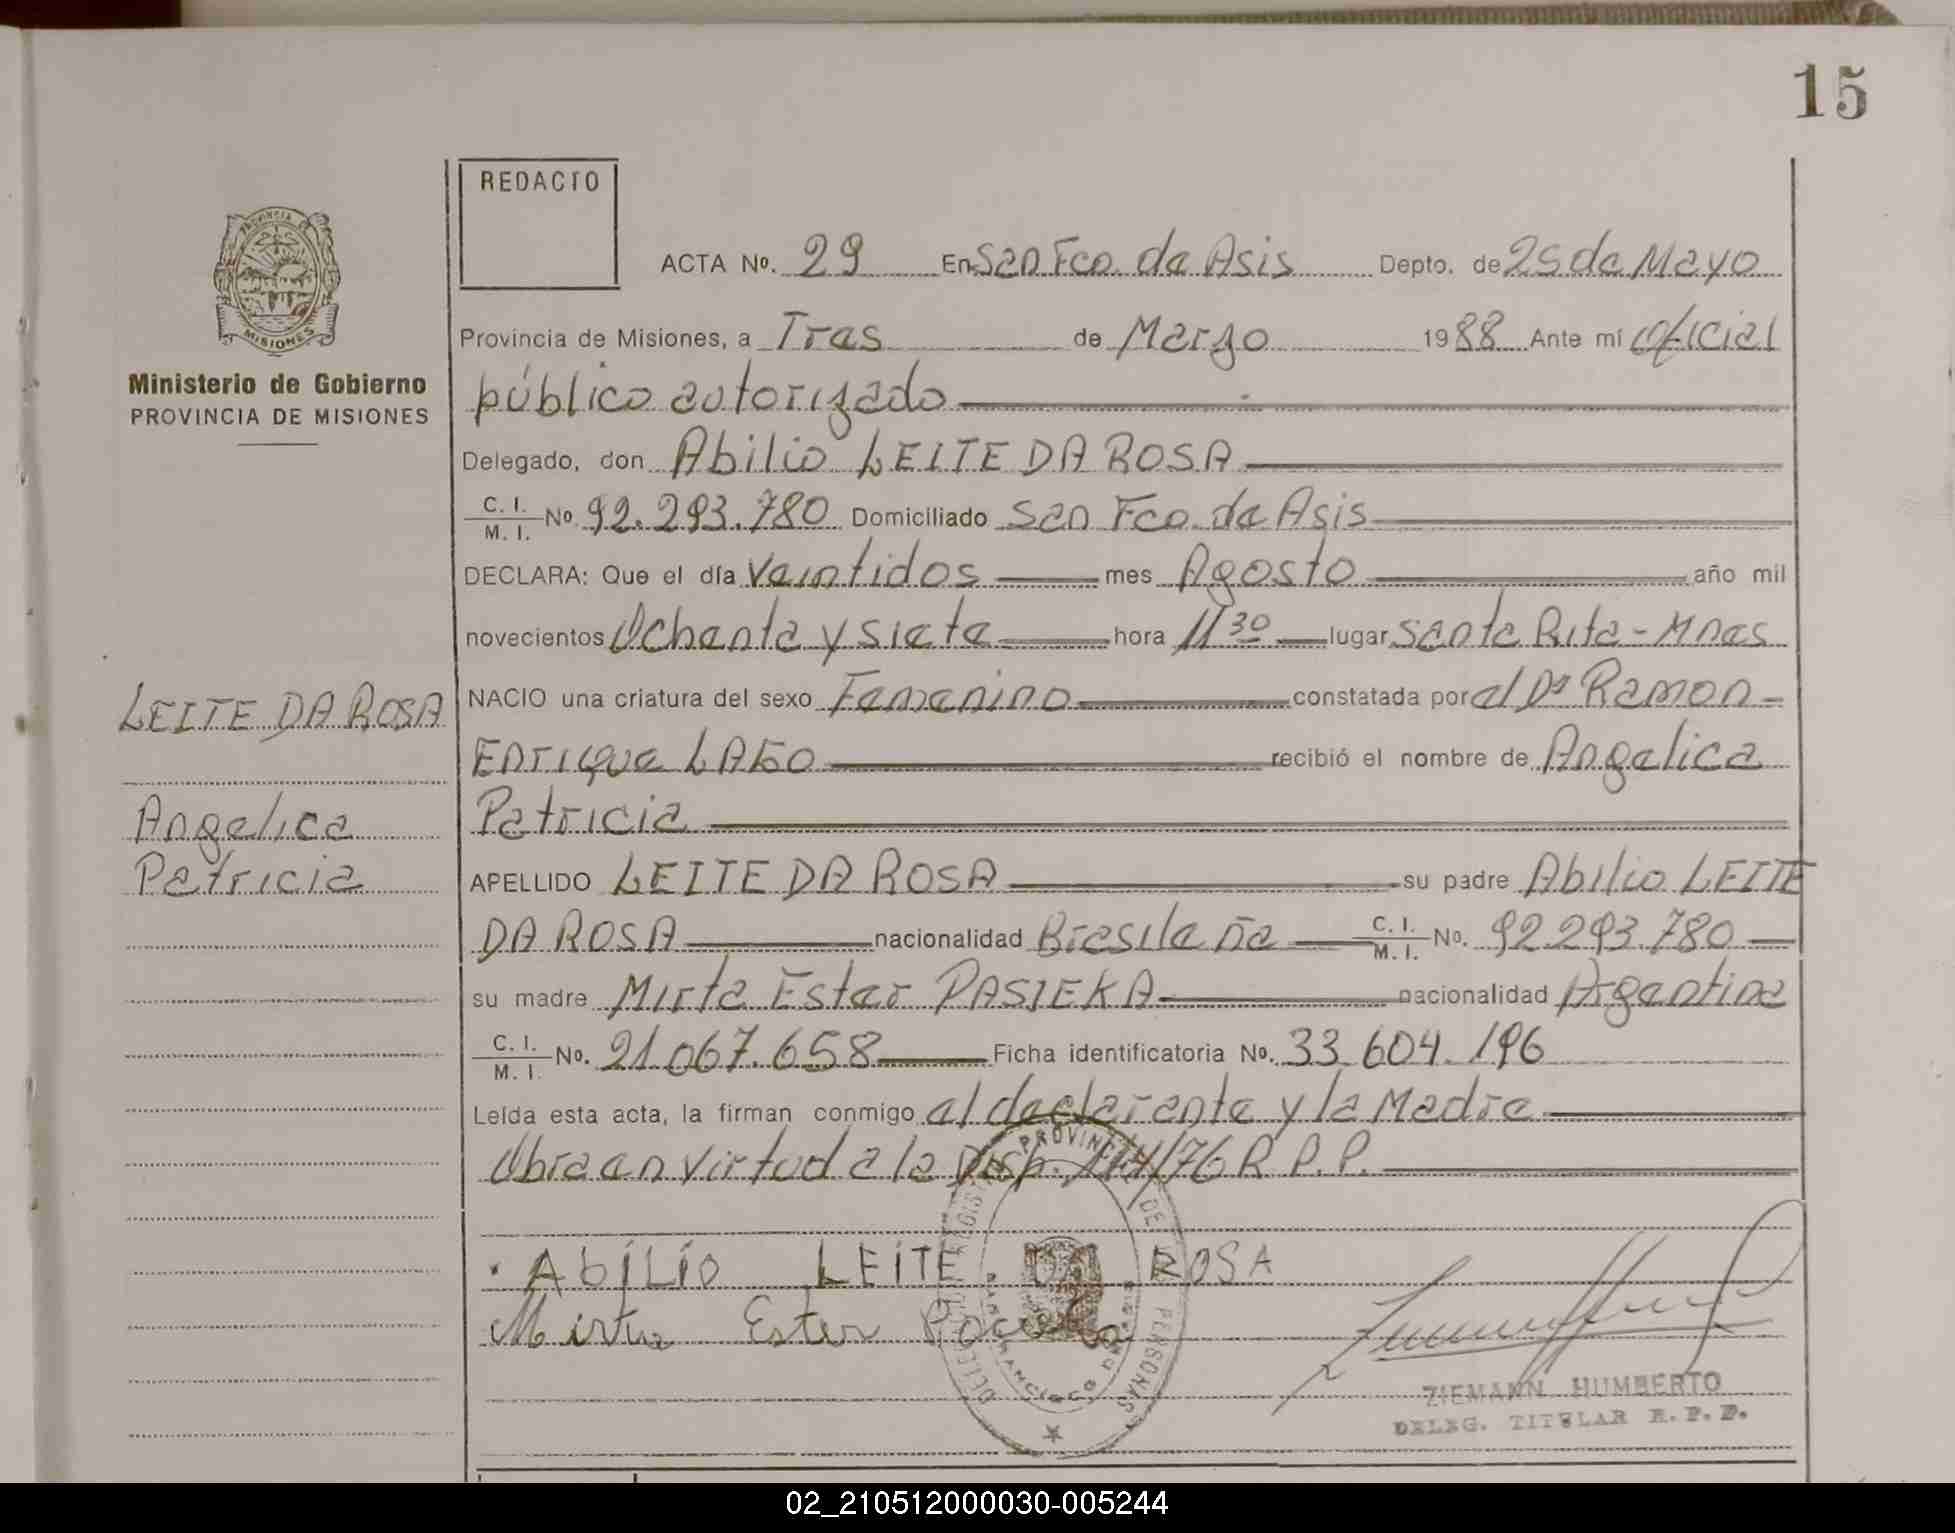 15
REDACTO
ACTA Nº. 29 En San Fco. de Asis Depto. de 25 de Mayo
Provincia de Misiones, a Tres de Marzo 1988 Ante mí oficial
público autorizado
Ministerio de Gobierno
PROVINCIA DE MISIONES
Delegado, don Abilio LEITE DA ROSA
C. I. / M. I. Nº 92.293.780 Domiciliado San Fco. de Asis
DECLARA: Que el día Veintidos mes Agosto año mil
novecientos Ochenta y siete hora 11 30 lugar Santa Rita - Mnes
LEITE DA ROSA
NACIO una criatura del sexo Femenino constatada por el Dr Ramon
Enrique LAGO recibió el nombre de Angelica
Angelica
Patricia
Patricia
APELLIDO LEITE DA ROSA su padre Abilio LEITE
DA ROSA nacionalidad Brasileña C. I. / M. I. No. 92.293.780
su madre Mirta Ester PASIEKA nacionalidad Argentina
C. I. / M. I. No. 21.067.658 Ficha identificatoria No. 33.604.196
Leída esta acta, la firman conmigo el declarante y la Madre
Obra en virtud a la Disp. 144/76 R P. P.
Abílío LEITE DA ROSA
Mirta Ester
ZIEMANN HUMBERTO
DELEG. TITULAR R. P. P.
02_210512000030-005244